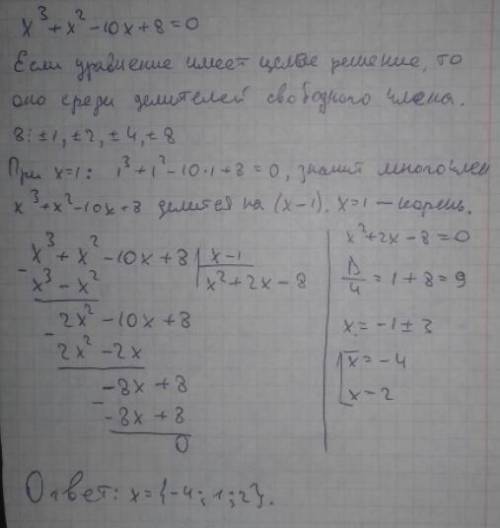 x³ + x² - 10x + 8 = 0
Если уравнение имеет целое решение, то
оно среди делителей свободного члена.
8: ±1, ±2, ±4, ±8
При x=1: 1³ + 1² - 10·1 + 8 = 0, значит многочлен
x³ + x² - 10x + 8 делится на (x-1). x=1 — корень.
- x³ + x² - 10x + 8 | x-1
x³ - x² | x² + 2x - 8
- 2x² - 10x + 8
2x² - 2x
- -8x + 8
-8x + 8
0
x² + 2x - 8 = 0
D/4 = 1 + 8 = 9
x = -1 ± 3
[ x = -4
x - 2
Ответ: x = {-4; 1; 2}.